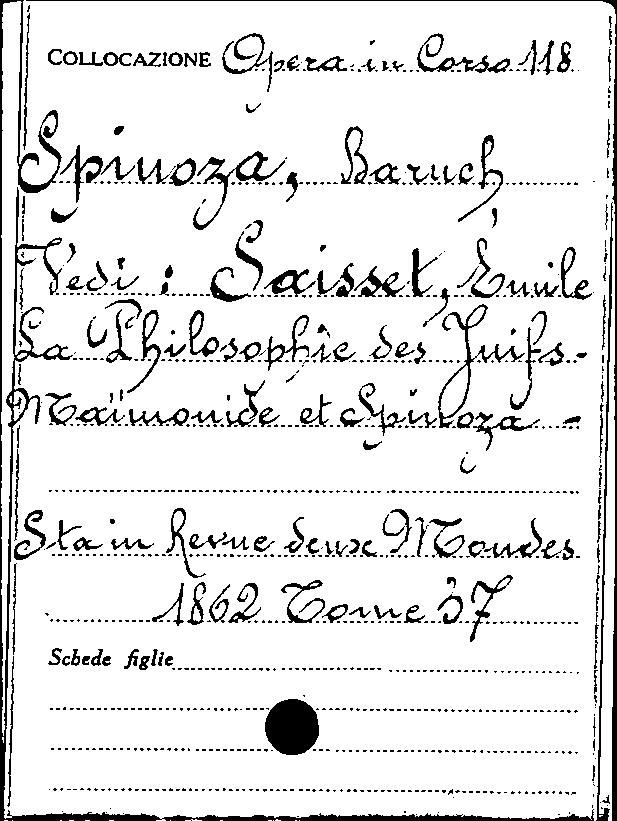 COLLOCAZIONE Opera in Corso 118
Spinoza, Baruch
Vedi : Saisset, Émile
La Philosophie des Juifs-
Maïmonide et Spinoza -
Sta in Revue deux Mondes
1862 Tome 37
Schede figlie